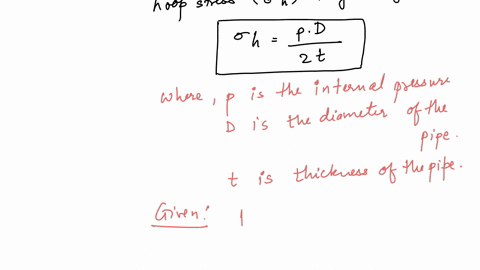 hoop stress (σh)
σh = p.D / 2t
where, p is the internal pressure
D is the diameter of the
pipe.
t is thickness of the pipe.
Given: